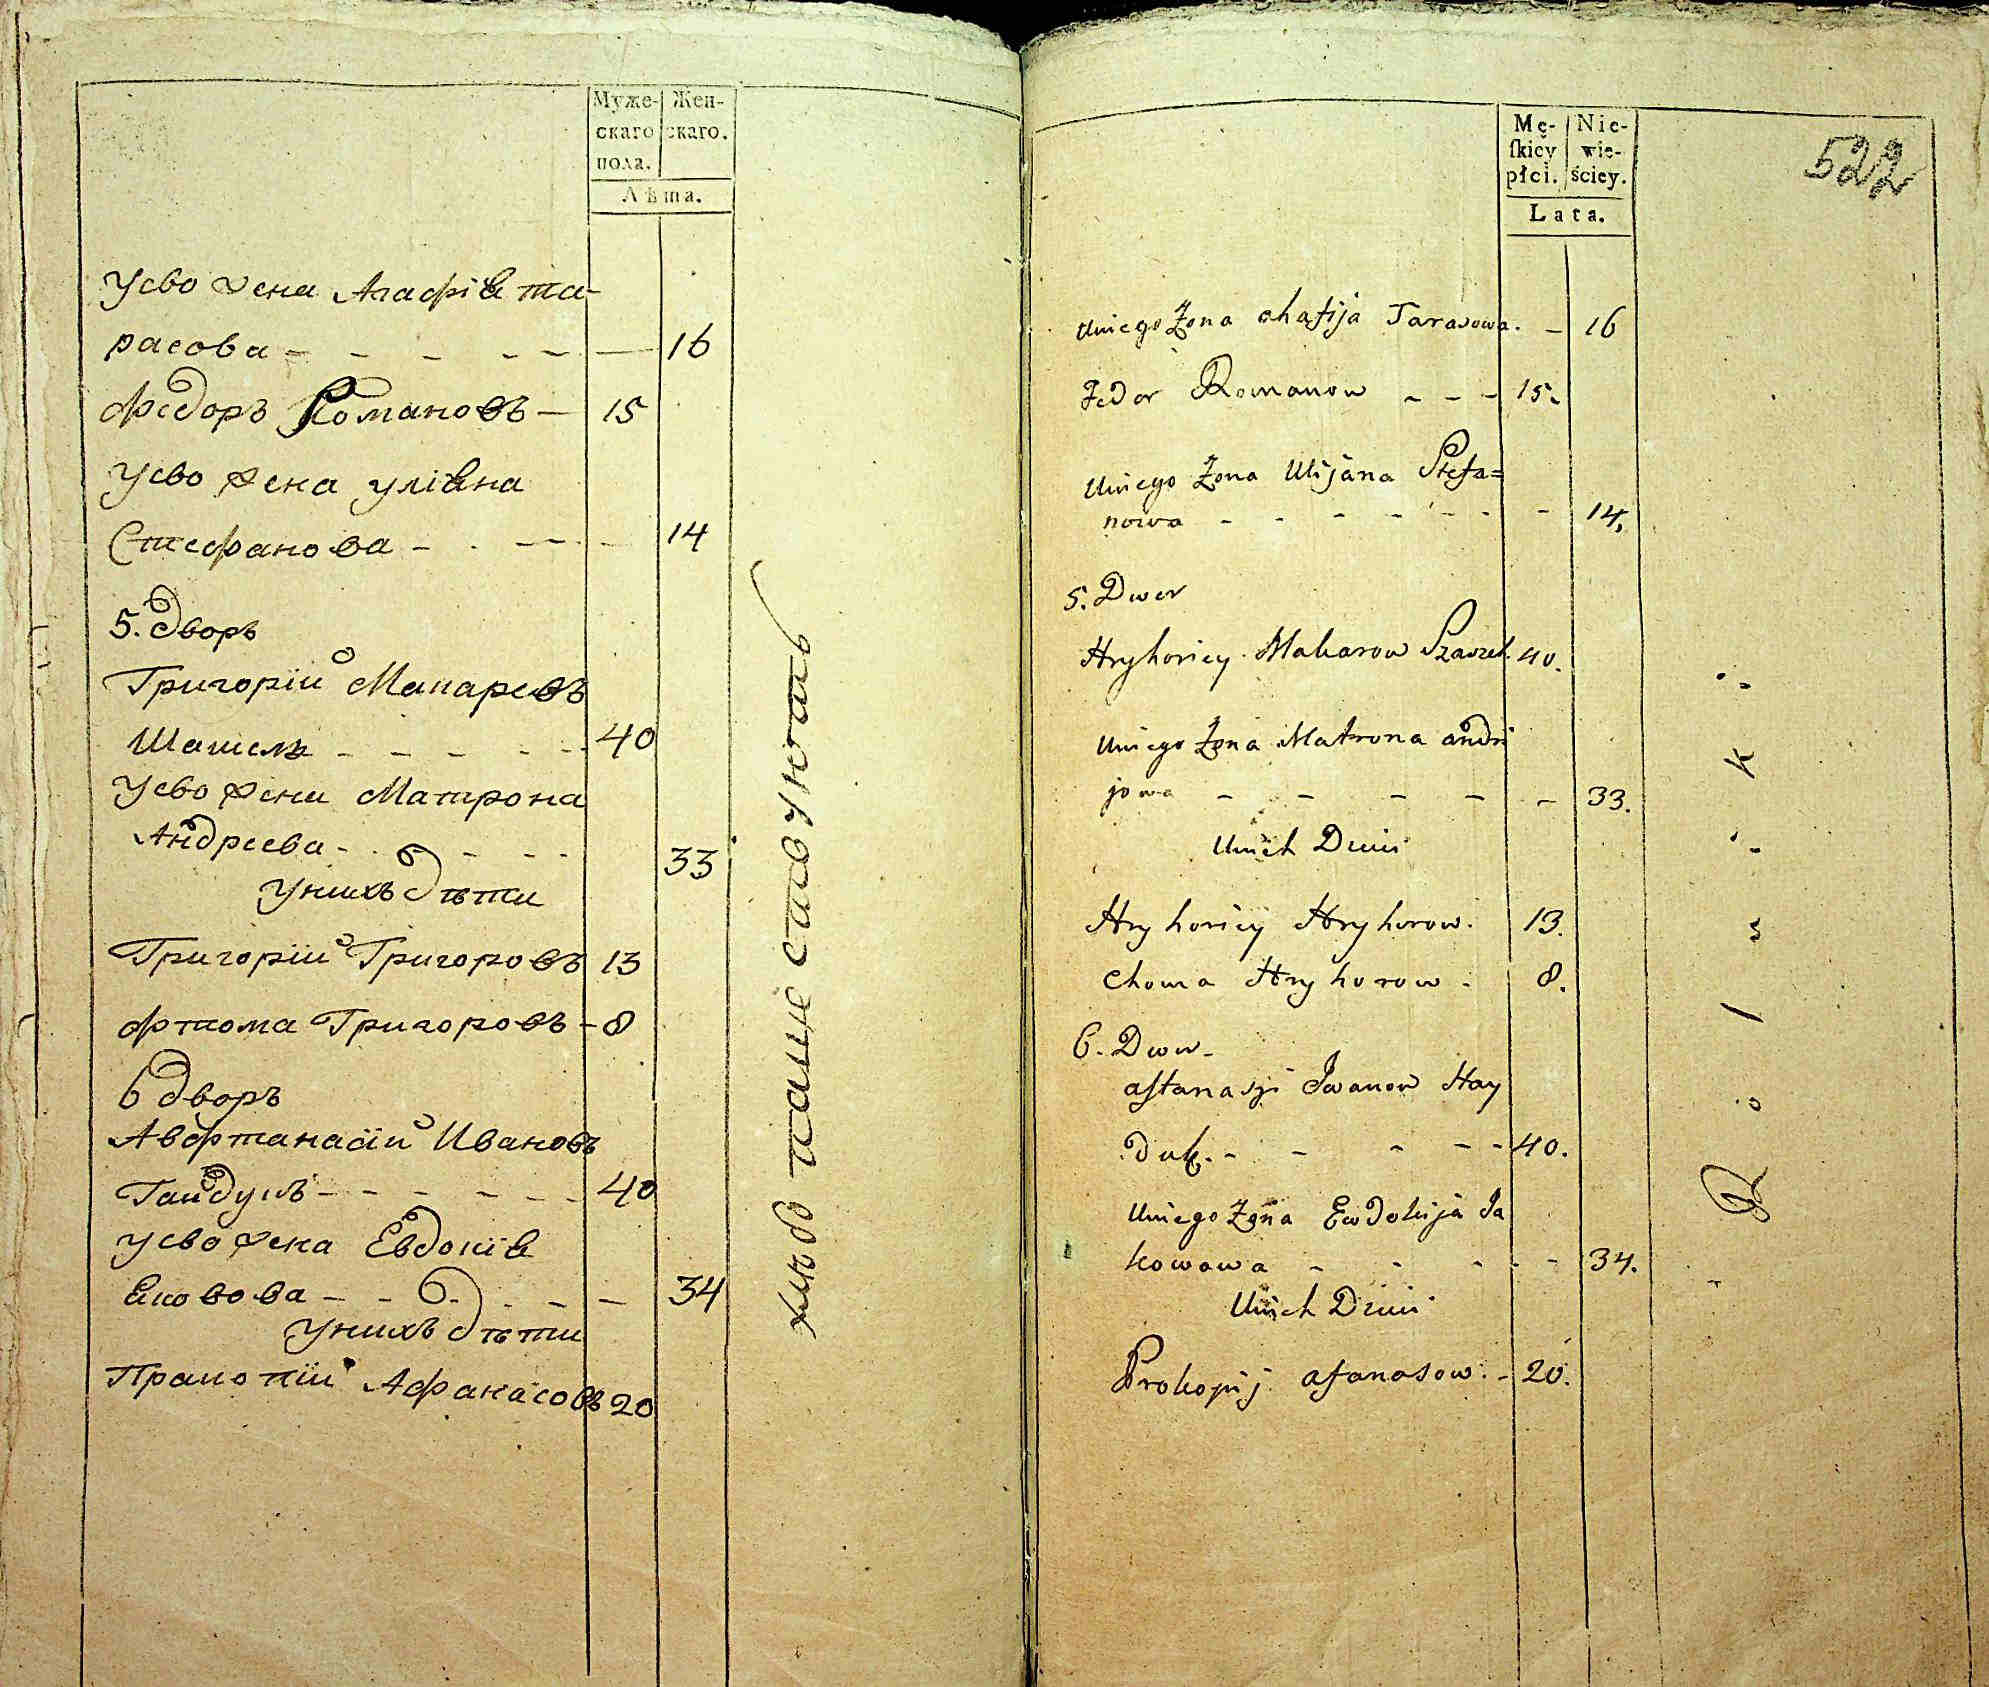 Муже-
скаго
пола.
Жен-
скаго.
Лѣта.
Уево жена Агафія та-
расова - - - - - 16
Федоръ Романовъ - 15
Уево жена уліяна
Стефанова - - - 14
5. дворъ
Григоріи Макаровъ
Шашель - - - - - 40
Уево жена Матрона
Андреева - - - - 33
Унихъ дѣти
Григоріи Григоровъ 13
Фтома Григоровъ - 8
6 дворъ
Авфтанасіи Ивановъ
Гайдукъ - - - - - 40
Уево жена Евдокія
Яковова - - - - - 34
Унихъ дѣти
Пракопіи Афанасовъ 20
хлѣбопашествуютъ
Mę-
ſkiey
płci.
Nie-
wie-
ściey.
Lata.
522
Uniego Żona ahafija Tarasowa. - 16
Fedor Romanow - - - 15.
Uniego Żona Ulijana Stefa=
nowa - - - - - - - 14.
5. Dwor
Hryhoriey Makarow Szaszel. 40.
Uniego Żona Matrona andri
jowa - - - - - 33.
Unich Dzieci
Hryhoriey Hryhorow. 13.
Choma Hryhorow. 8.
6. Dwor
aftanazi Iwanow Hay
duk. - - - - - 40.
Uniego Żona Ewdokija Ja
kowowa - - - - - 34.
Unich Dzieci
Prokopij afanasow. - 20.
Rolniki